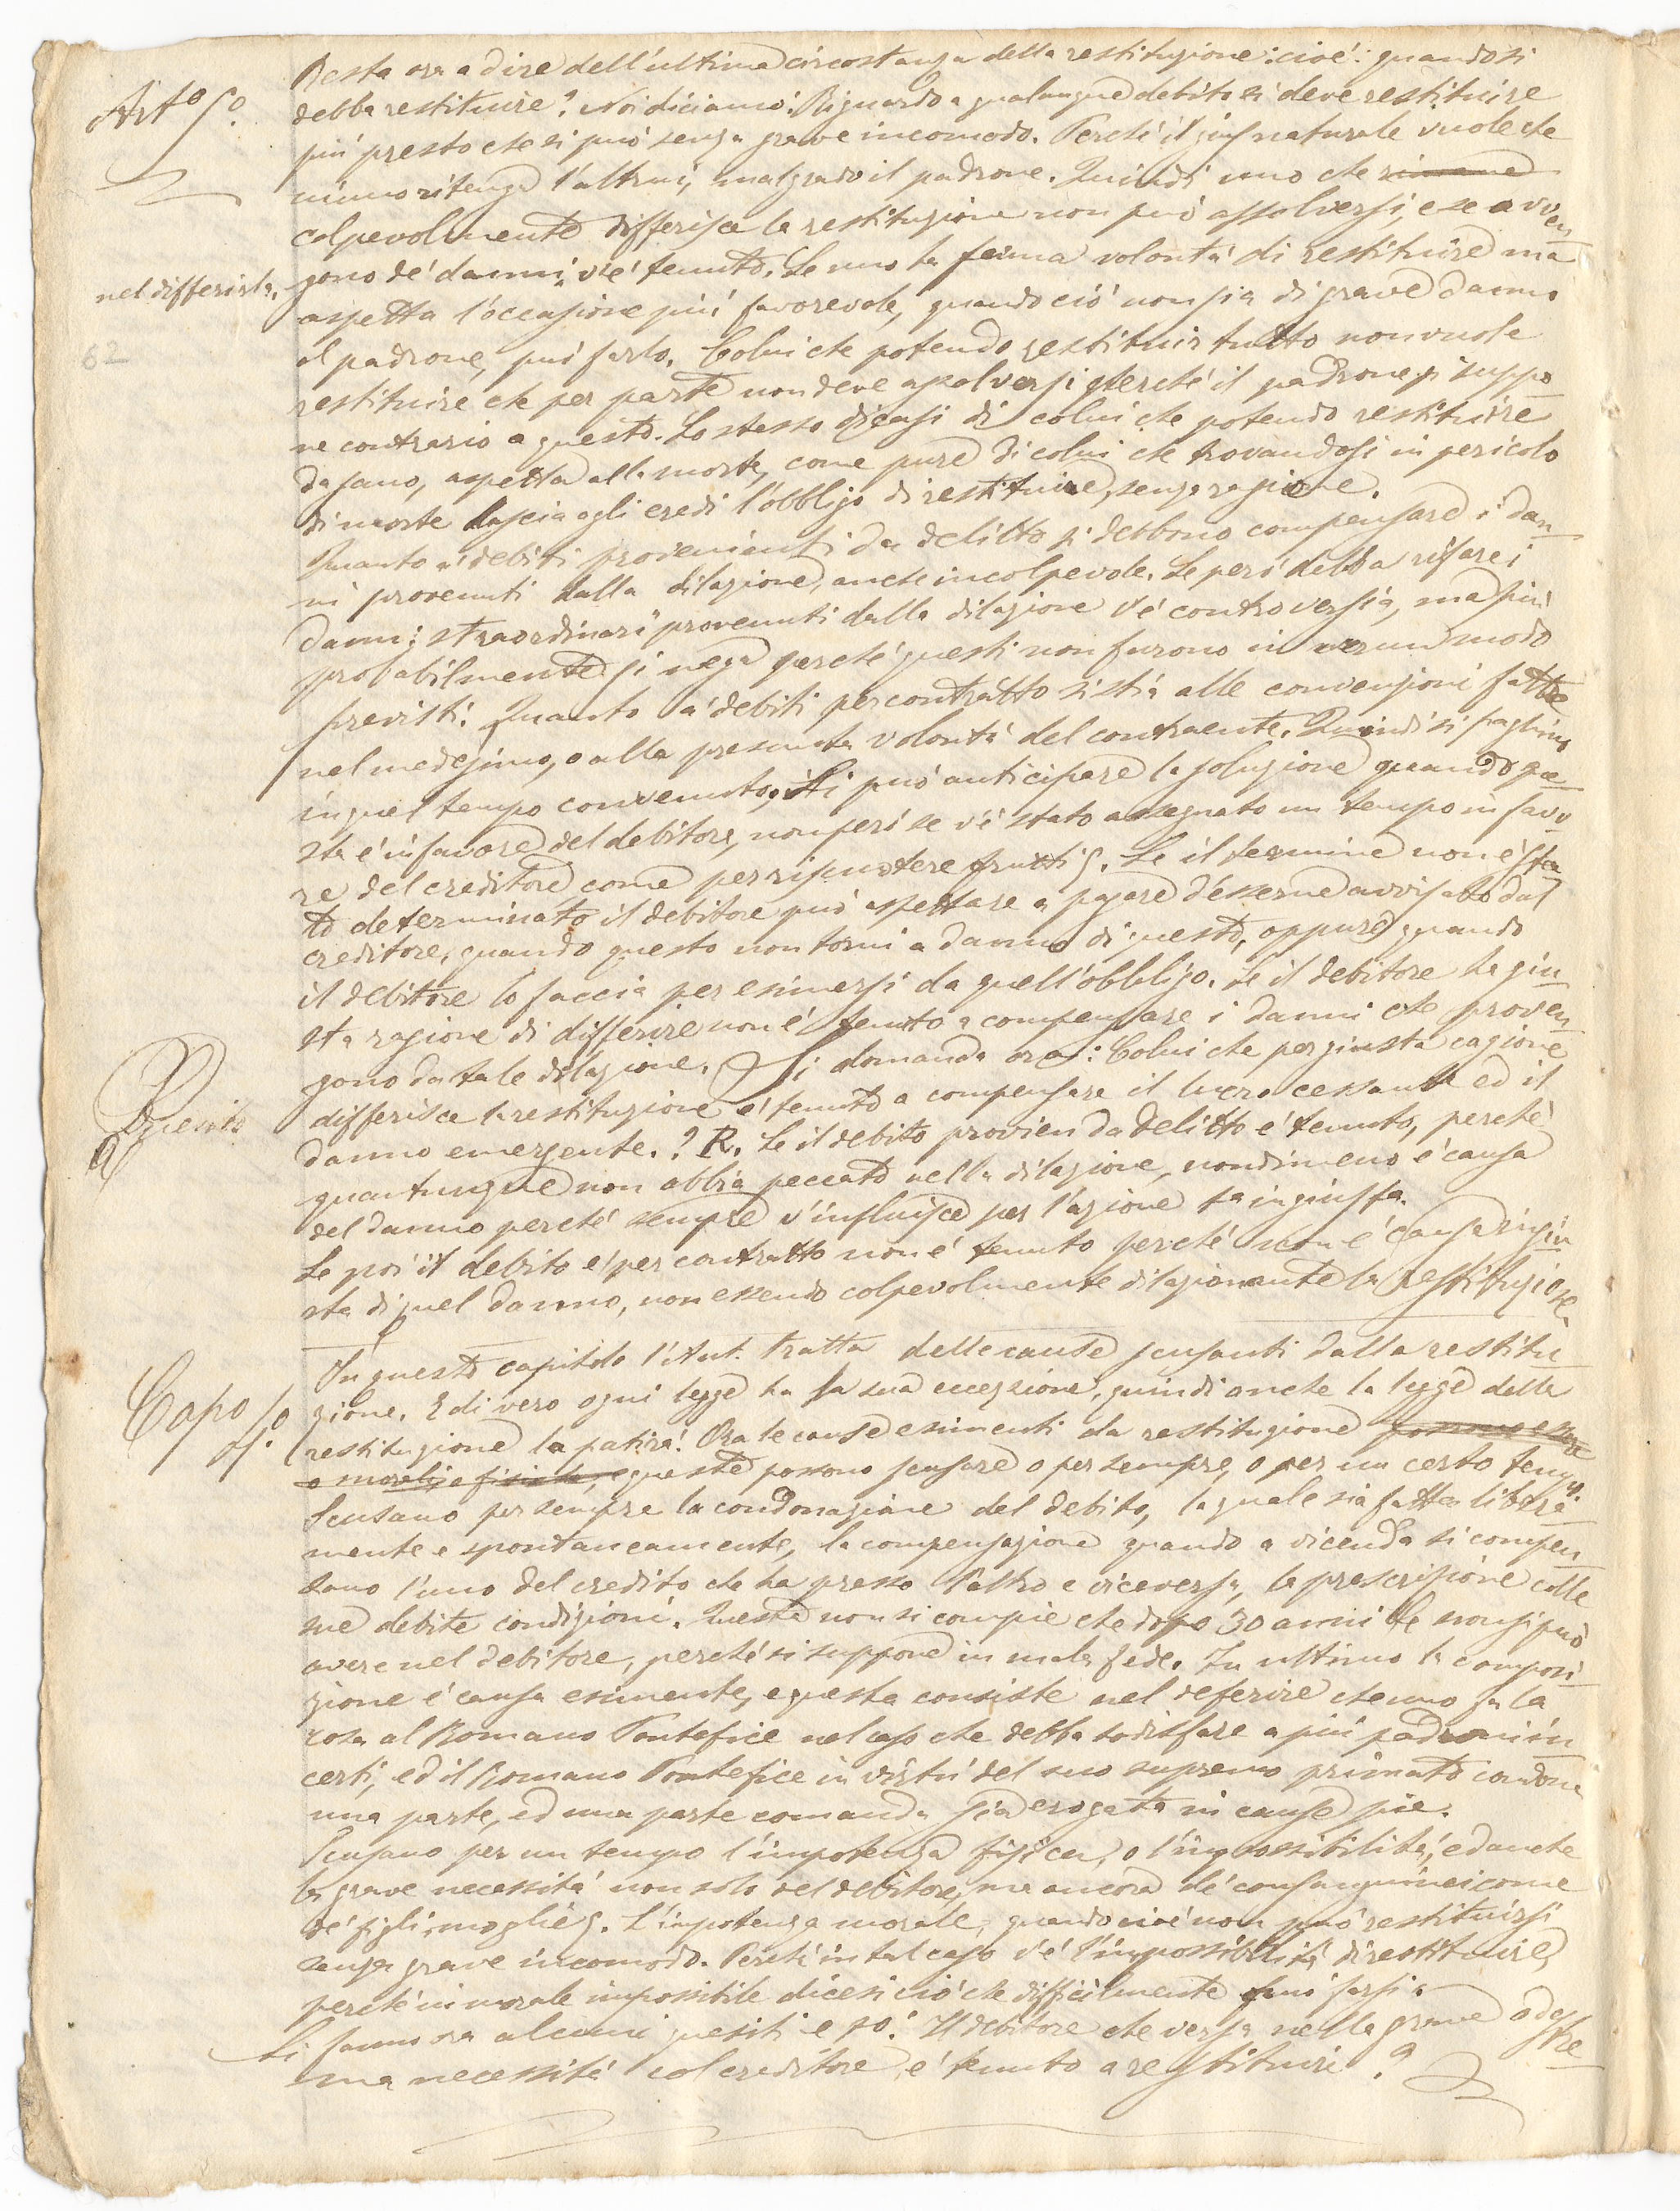 Resta ora a dire dell'ultima circostanza della restituzione: cioé: quando si
Art.o 5.o
debba restituire? Noi diciamo: Riguardo a qualunque debito si deve restituire
piú presto che si puó senza grave incomodo. Perché il jus naturale vuole che
niuno ritenga l'altrui, malgrado il padrone. Quindi uno che rimane
colpevolmente differisce la restituzione non puó assolversi, e se avven
gono de' danni, v'é tenuto. Se uno ha ferma volontá di restituire ma
nel differirla,
aspetta l'occasione piú favorevole, quando ció non sia di grave danno
62
al padrone, puó farlo. Colui che potendo restituir tutto non vuole
restituire che per parte non deve assolversi perché il padrone si suppo
ne contrario a questo. Lo stesso dicasi di colui che potendo restituire
da sano, aspetta alla morte, come pure di colui che trovandosi in pericolo
di morte lascia agli eredi l'obbligo di restituire, senza ragione.
Quanto a' debiti provenienti da delitto si debbono compensare i dan
ni provenuti dalla dilazione, anche incolpevole. Se peró debba rifare i
danni straordinarî provenuti dalla dilazione v'é controversia, ma piú
probabilmente si nega perché questi non furono in verun modo
previsti. Quanto a' debiti per contratto si stia alle convenzioni fatte
nel medesimo, o alla presunta volontá del contraente. Quindi si paghino
in quel tempo convenuto; Si puó anticipare la soluzione quando que
sta é in favore del debitore, non peró se v'é stato assegnato un tempo in favo
re del creditore come per riscuotere frutti &. Se il termine non é sta
to determinato il debitore puó aspettare a pagare d'esserne avvisato dal
creditore, quando questo non torni a danno di questo, oppure quando
il debitore lo faccia per esimersi da quell'obbligo. Se il debitore ha giu
sta ragione di differire non é tenuto a compensare i danni che proven
gono da tale dilazione. Si domanda ora: Colui che per giusta cagione
Quesito
differisce la restituzione é tenuto a compensare il lucro cessante ed il
danno emergente.? R. Se il debito provien da delitto é tenuto, perché
quantunque non abbia peccato nella dilazione, nondimeno é causa
del danno perché sempre v'influisce per l'azione sa ingiusta.
Se poi il debito é per contratto non é tenuto perché non é causa ingiu
sta di quel danno, non essendo colpevolmente dilazionante la restituzione.
In questo capitolo l'Aut. tratta delle cause scusanti dalla restitu
Capo
zione. E di vero ogni legge ha la sua eccezione, quindi anche la legge della
restituzione la patirá. Ora le cause esimenti da restituzione possono essere
o morali, o fisiche, queste possono scusare o per sempre, o per un certo tempo.
Scusano per sempre la condonazione del debito, la quale sia fatta libera
mente e spontaneamente, la compensazione quando a vicenda si compen
sano l'uno del credito che ha presso l'altro e viceversa, la prescrizione colle
sue debite condizioni. Questa non si compie che dopo 30 anni e non si puó
avere nel debitore, perché si suppone in mala fede. In ultimo la composi
zione é causa esimente, e questa consiste nel deferire che uno fa la
cosa al Romano Pontefice nel caso che debba sodisfare a piú padroni in
certi, ed il Romano Pontefice in virtú del suo supremo primato condona
una parte, ed una parte comanda sia erogata in cause pie.
Scusano per un tempo l'impotenza fisica, o l'impossibilitá, ed anche
la grave necessitá non solo del debitore, ma ancora de' consanguinei come
de' figli, moglie &. L'impotenza morale, quando cioé non puó restituirsi
senza grave incomodo. Perché in tal caso v'é l'impossibilitá di restituire,
perché in morale impossibile dicesi ció che difficilmente puó farsi.
Si fanno ora alcuni quesiti e po: Il debitore che versa nella grave od estre
ma necessitá col creditore, é tenuto a restituire?